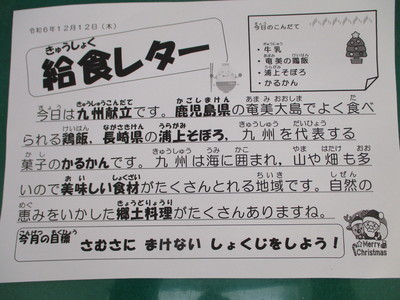 令和6年12月12日(木)
給食レター
今日のこんだて
・牛乳
・奄美の鶏飯
・浦上そぼろ
・かるかん
今日は九州献立です。鹿児島県の奄美大島でよく食べ
られる鶏飯，長崎県の浦上そぼろ，九州を代表する
菓子のかるかんです。九州は海に囲まれ，山や畑も多
いので美味しい食材がたくさんとれる地域です。自然の
恵みをいかした郷土料理がたくさんありますね。
今月の目標 さむさに まけない しょくじをしよう！
Merry
Christmas